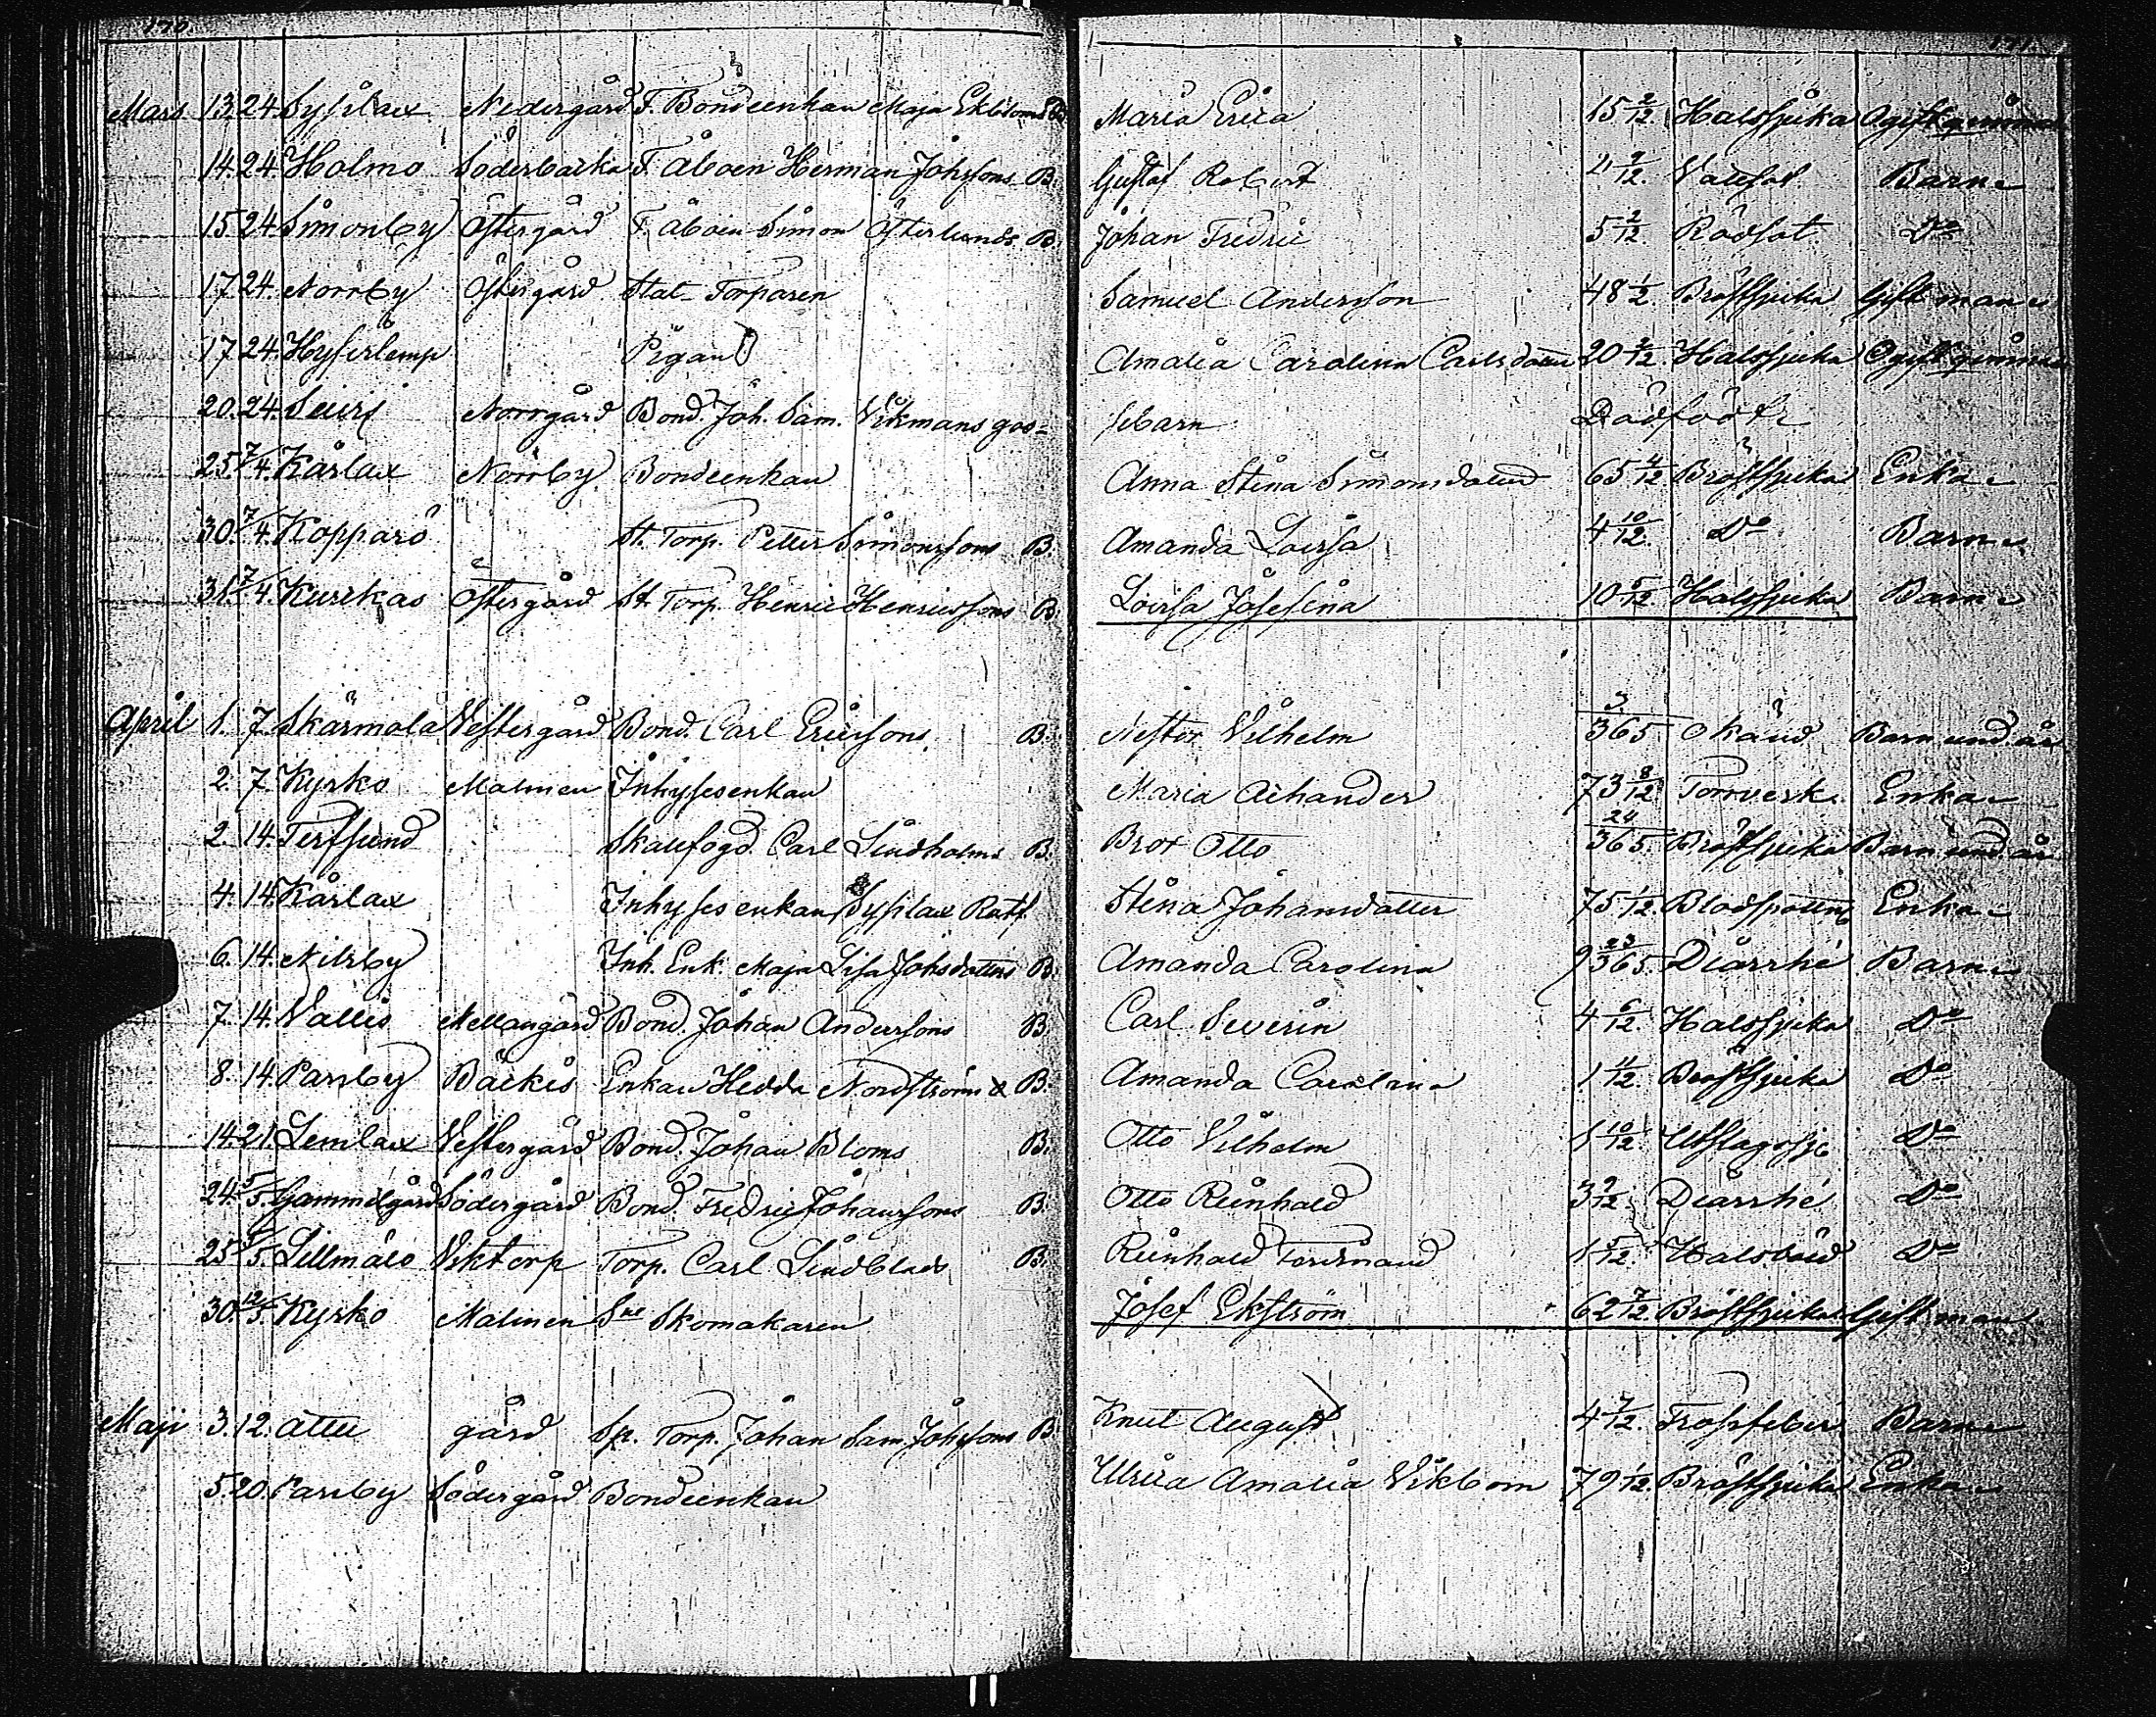 170.
171.
Mars 13. 24. Sysilax Nedergård F. Bondeenkan Maja Ekbloms B. Maria Erica 15 2/12. Halssjuka Ogift
14. 24. Holmo Söderbacka F. Åboen Herman Johssons B. Gustaf Robert 4 9/12. Vattsot Barn
15. 24. Simonby Östergård F. Åboen Simon Österlunds B. Johan Fredric 5 2/12. Rödsot Do
17. 24. Norrby Östergård Stat Torparen Samuel Andersson 48 1/2. Bröstsjuka Gift man
17. 24. Hysirkemp Pigan Amalia Carolina Carlsdotter 20 2/12. Halssjuka Ogift
20. 24. Norrgård Bond. Joh. Sam. Vikmans gos= sebarn Dödfödt
25. 7/4. Kårlax Norrby Bondeenkan Anna Stina Simonsdotter 65 4/12 Bröstsjuka Enka
30. 7/4. Kopparö St. Torp. Petter Simonssons B. Amanda Lovisa 4 10/12. Do Barn
31. 7/4. Kurckas Östergård St. Torp. Henric Henricssons B. Lovisa Josefina 10 5/12. Halssjuka Barn
April 1. 7. Skärmola Vestergård Bond. Carl Ericssons B. Nestor Vilhelm 3/365 Okänd Barn und. år
2. 7. Kyrko Malmen Inhysesenkan Maria Aihander 73 8/12 Torrverk Enka
2. 14. Terfsund Skallfogd. Carl Lindholms B. Bror Otto 24/365. Bröstsjuka Barn und. år
4. 14. Kårlax Inhysesenkan Sysilax Rotf. Stina Johansdotter 75 1/12. Blodspottn. Enka
6. 14. Nilsby Inh. Enk. Maja Lisa Johsdotters B. Amanda Carolina 9 23/365. Diarrhé Barn
7. 14. Vallis Mellangård Bond. Johan Anderssons B. Carl Severin 4 6/12. Halssjuka Do
8. 14. Parsby Bäckis Enkan Hedda Nordströms B. Amanda Carolina 1 4/12. Bröstsjuka Do
14. 21. Lemlax Vestergård Bond. Johan Bloms B. Otto Vilhelm 1 10/12. Utslagssj. Do
24. 5/5. Gammelgård Södergård Bond. Fredric Johanssons B. Otto Reinhold 3 9/12. Diarrhé Do
25. 5/5. Lillmälo Viktorp Torp. Carl Lindblads B. Reinhold Ferdinand 1 5/12. Halsböld Do
30. 12/5. Kyrko Malmen Sne Skomakaren Josef Ekström 62 7/12. Bröstsjuka Gift man
Maji 3. 12. Attu gård Sp. Torp. Johan Sam. Johssons B. Knut August 4 7/12. Frossfeber Barn
5. 20. Parsby Södergård Bondeenkan Ulrica Amalia Vikbom 79 1/12. Bröstsjuka Enka